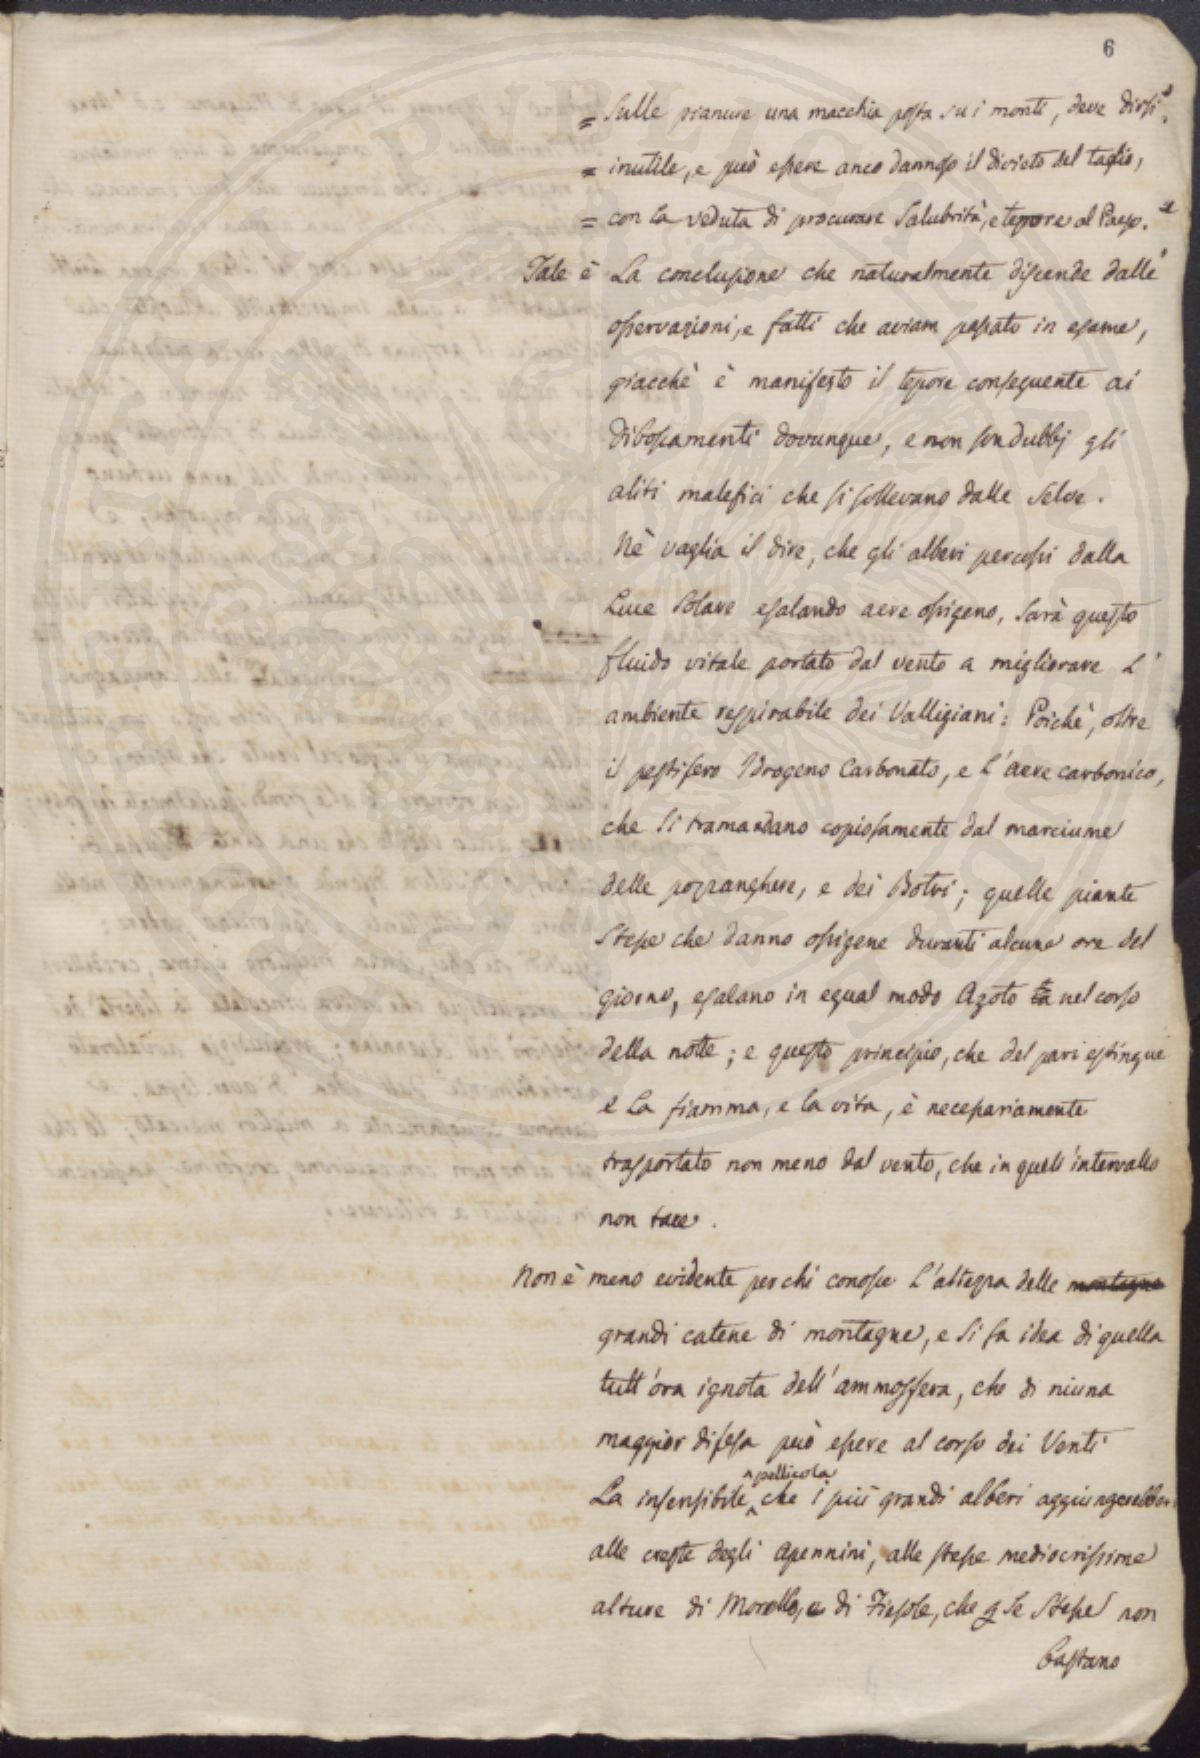 6
= Sulle pianure una macchia posta su i monti, deve dirsi
= inutile, e può essere anco dannoso il divieto del taglio,
= con la veduta di procurare Salubrità, e tepore al Paese.
Tale è La conclusione che naturalmente discende dalle
osservazioni, e fatti che aviam passato in esame,
giacchè è manifesto il tepore conseguente ai
dibosamenti dovunque, e non son dubbj gli
aliti malefici che si sollevano dalle Selve.
Nè vaglia il dire, che gli alberi percossi dalla
Luce Solare esalando aere ossigeno, sarà questo
fluido vitale portato dal vento a migliorare L'
ambiente respirabile dei Valligiani: Poichè, oltre
il pestifero Idrogeno Carbonato, e L'aere carbonico,
che si tramandano copiosamente dal marciume
delle pozzanghere, e dei Botri; quelle piante
Stesse che danno ossigene duranti alcune ore del
giorno, esalano in egual modo Azoto nel corso
della notte; e questo principio, che del pari estingue
e La fiamma, e la vita, è necessariamente
trasportato non meno dal vento, che in quell'intervallo
non tace.
Non è meno evidente per chi conosce L'altezza delle montagne
grandi catene di montagne, e si fa idea di quella
tutt'óra ignota dell'ammosfera, che di niuna
maggior difesa può essere al corso dei Venti
La insensibile pellicola che i più grandi alberi aggiungerebbero
alle creste degli Apennini, alle stesse mediocrissime
alture di Morello, e di Fiesole, che se Stesse non
bastano